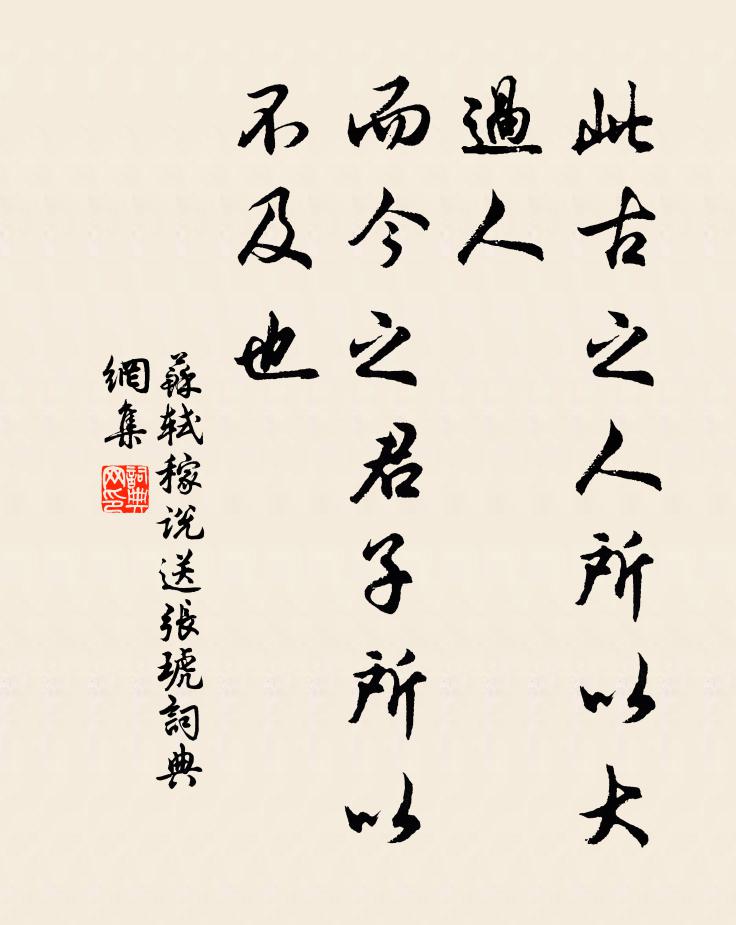 此古之人所以大
過人
而今之君子所以
不及也
蘇軾稼說送張琥詞典
網集
詞典
网印